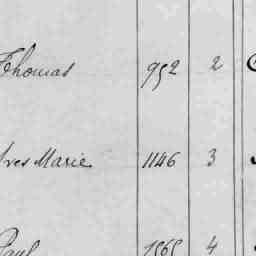 Thomas 952 2
Yves Marie 1146 3
Paul 4